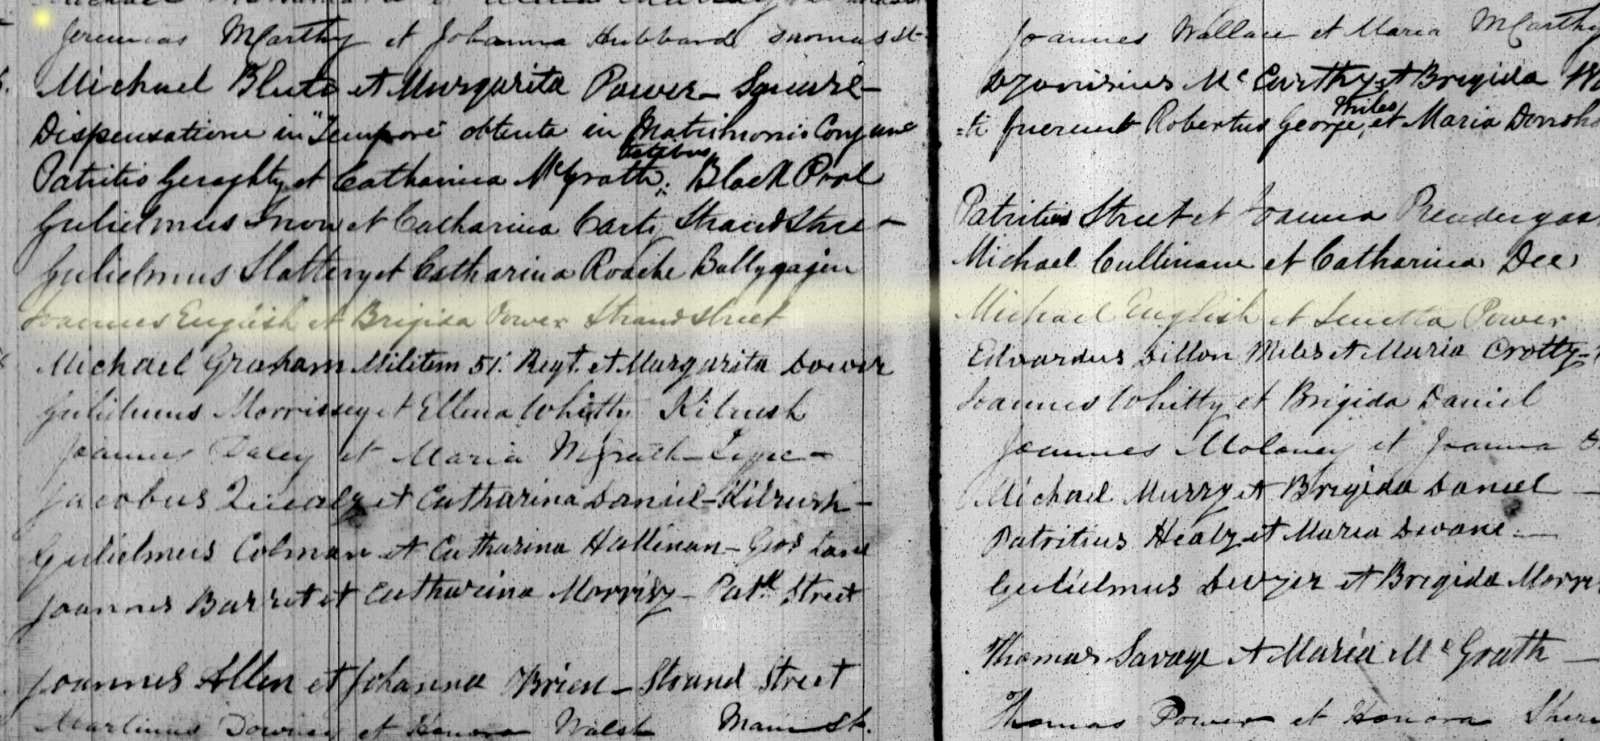 Jeremias McCarthy et Johanna Hubbard Thomas St.
Joannes Wallace et Maria McCarthy
Michael Blute et Margarita Power - Square -
Dyonisius McCarthy et Brigida
Dispensatione in "Tempore" obtenta in Matrimonio Conjunc
=ti fuerunt Robertus George, Miles et Maria Donoho
Patritio Geraghty et Catharina McGrath; Black Pool
Gulielmus Snow et Catharina Carti Strand Stree -
Patritius Street et Joanna Prendergas
Gulielmus Slattery et Catharina Roache Ballygagin
Michael Cullinane et Catharina Dee
Joannes English et Brigida Power Strand Street
Michael English et Power
Michael Graham Militem 51. Regt. et Margarita Power
Edvardus Dillon Miles et Maria Crotty -
Gulielmus Morrissey et Ellena Whitty Kilrush
Joannes Whitty et Brigida Daniel
Joannes Daley et Maria McGrath -
Joannes Moloney et Joanna
Jacobus Quealy et Catharina Daniel - Kilrush -
Michael Murry et Brigida Daniel -
Gulielmus Colman et Catharina Hallinan - Geos Lane
Patritius Healy et Maria Dwane -
Joannes Barret et Catharina Morrisy - Patk Street
Gulielmus Dwyer et Brigida Morris
Joannes Allen et Johanna OBrien - Strand Street
Thomas Savage et Maria McGrath -
Martinus Downey et Honora Walsh Main St.
Thomas Power et Honora